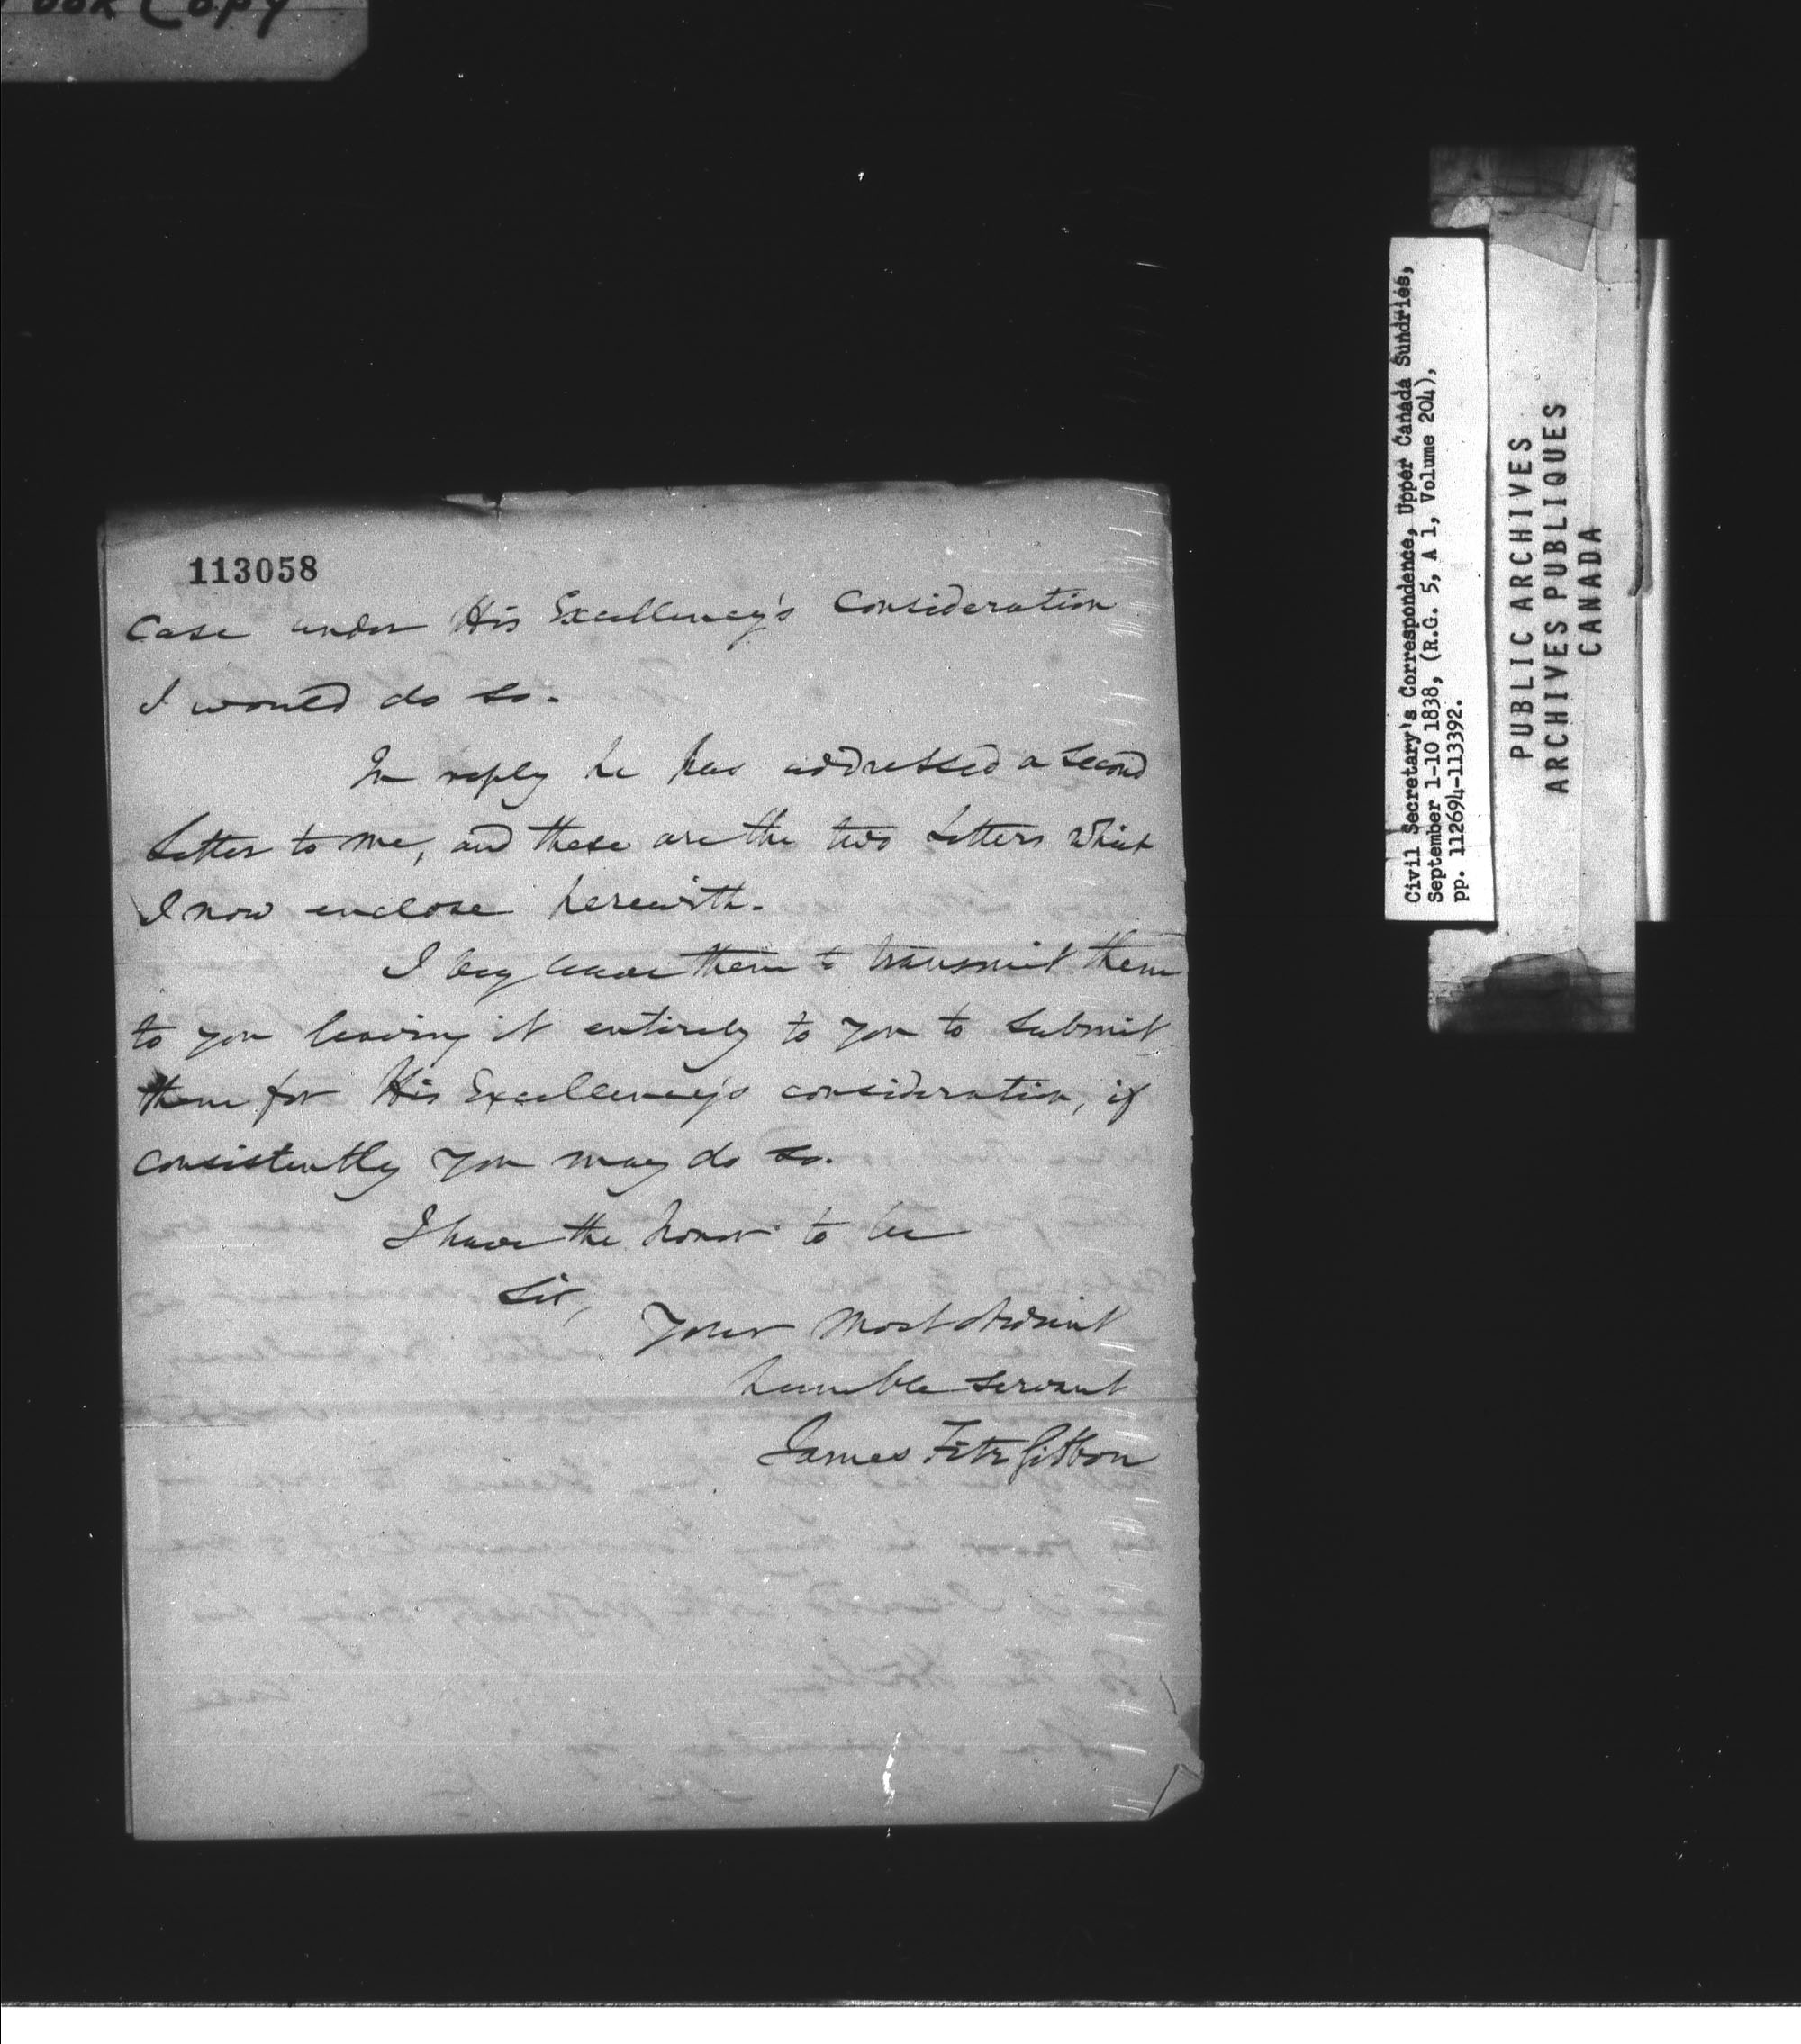 ook Copy
113058
Case under His Excellency's Consideration
I would do so.
In reply he has addressed a second
Letter to me, and these are the two Letters which
I now enclose herewith.
I beg leave them to transmit them
to you leaving it entirely to you to submit
them for His Excellency's consideration, if
consistently you may do so.
I have the honor to be
Sir,
Your most obedient
humble servant
James FitzGibbon
Civil Secretary's Correspondence, Upper Canada Sundries,
September 1-10 1838, (R.G. 5, A 1, Volume 204),
pp. 112694-113392.
PUBLIC ARCHIVES
ARCHIVES PUBLIQUES
CANADA